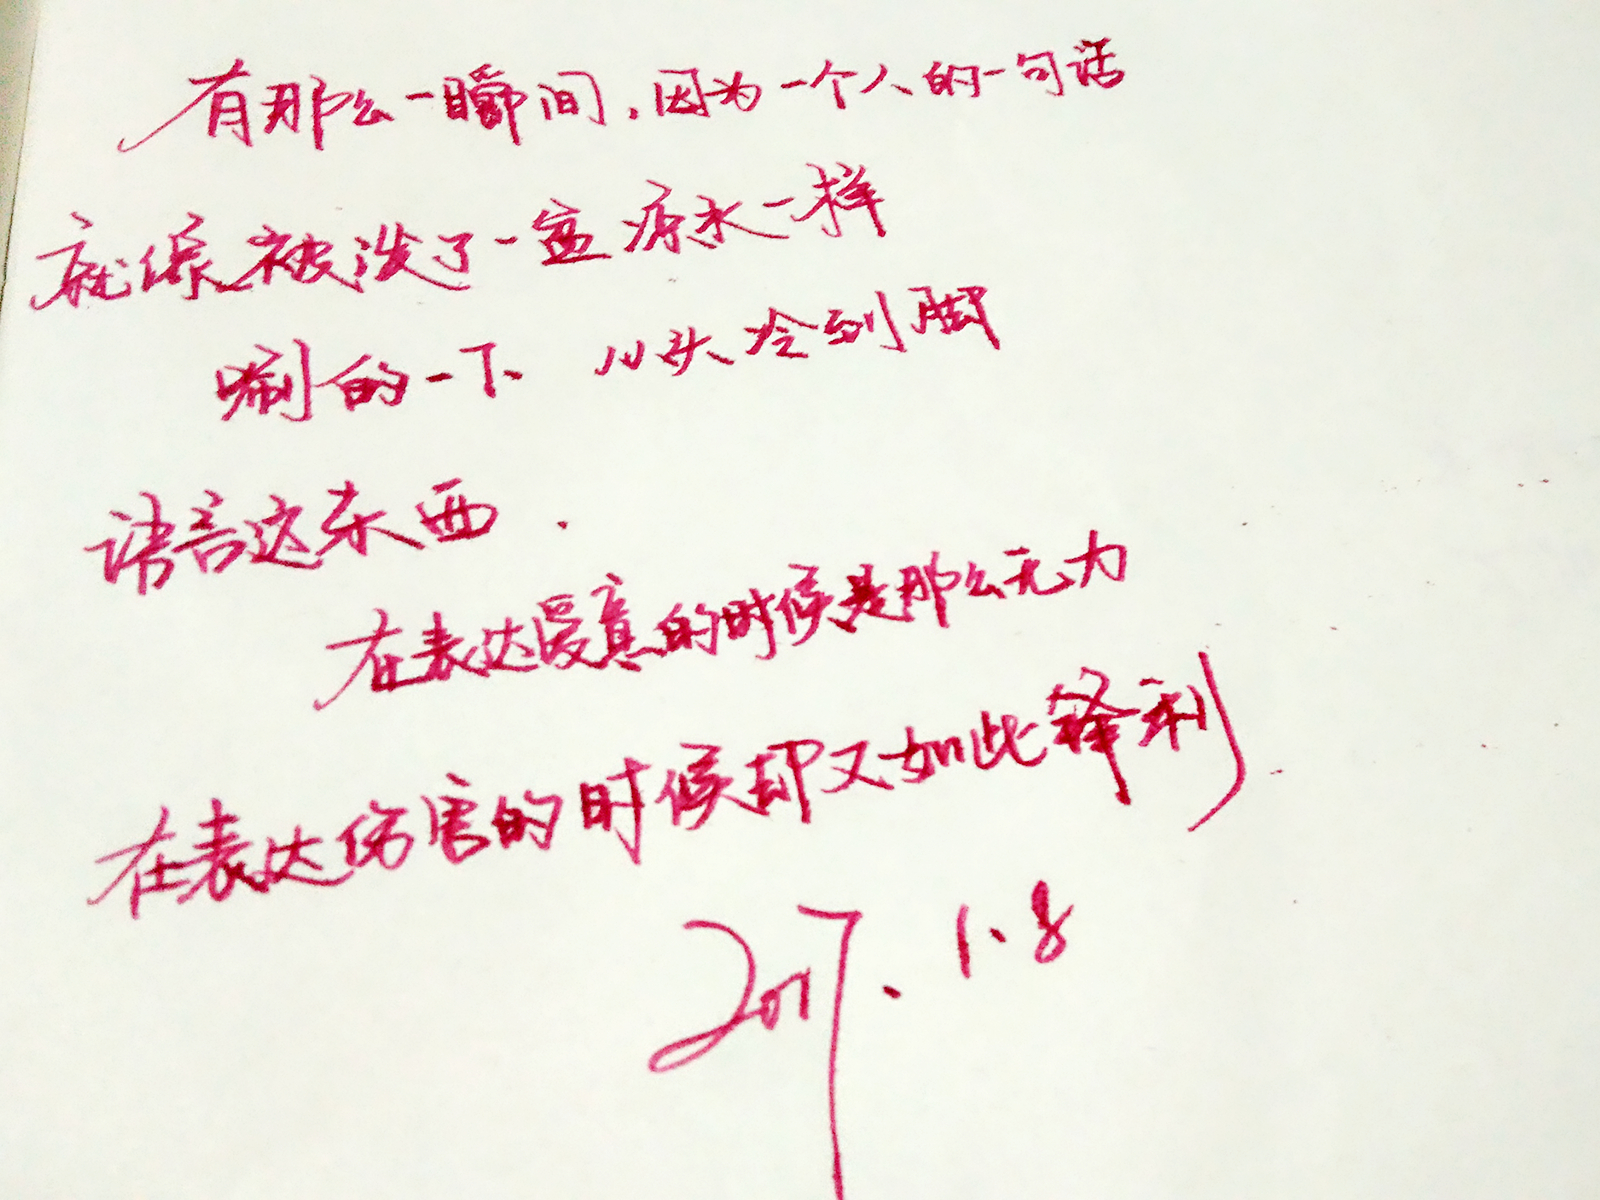 有那么一瞬间，因为一个人的一句话
就像被泼了一盆凉水一样
唰的一下 从头冷到脚
语言这东西.
在表达爱意的时候是那么无力
在表达伤害的时候却又如此锋利
2017.1.8